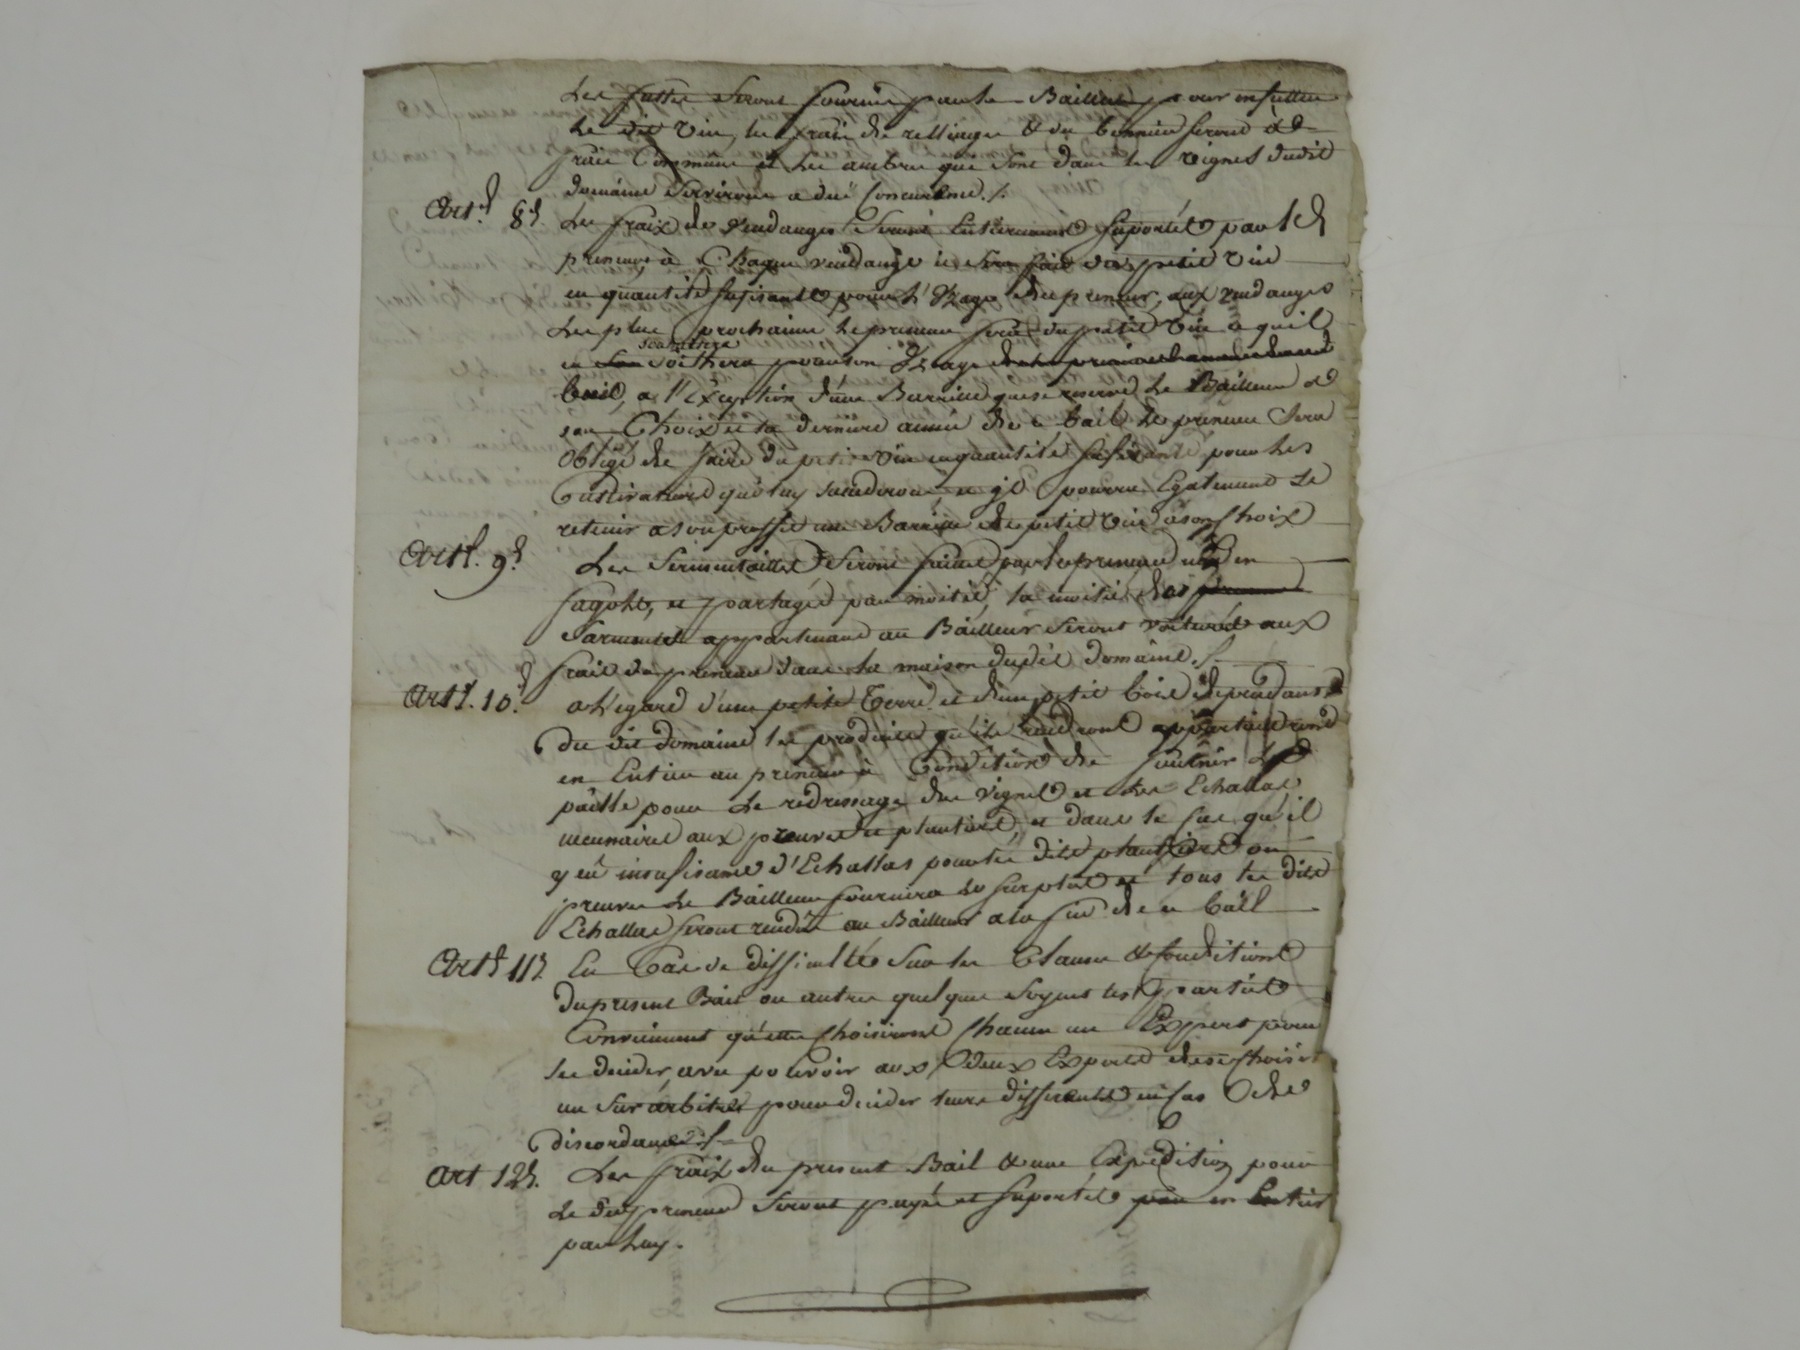 Les futtes seront fournis par le Bailleur pour enfutter
le dit vin, les frais de relliages & du bennier seront à
frais Communs et les aubres qui sont dans les vignes dudit
domaine serviront a due Concurence ./.
Art. 8e. Les fraix de vendanges seront Entierement suportés par le
preneur, à Chaque vendange il sera fait du petit vin
en quantité sufisante pour l'Uzage du preneur, aux vendanges
les plus prochaines le preneur fera du petit vin a quil
en souhaitera pour son Uzage
bail, a l'Exception d'une Barrique que se reserve le Bailleur a
son Choix et la derniere année de ce bail le preneur sera
Obligé de faire du petit vin en quantité sufisante pour les
Cultivateurs qui luy succederont, et il pourra Egalement se
retenir a son proffit une Barrique de petit vin a son Choix
Art. 9e. Les sermentailles seront faittes par le preneur mis en
fagots, et partagés par moitié, la moitié des
sarments appartenant au Bailleur seront voiturés aux
frais du preneur dans la maison dudit domaine ./.
Art. 10e. a l'egard d'une petite terre et d'un petit bois dependants
du dit domaine les produits qu'ils rendront appartiendront
en Entier au preneur à Condition de fournir la
paille pour le redressage des vignes et les Echallas
necessaires aux preuves et plantiers, et dans le cas qu'il
y eu insufisance d'Echallas pour les dits plantiers ou
preuves le Bailleur fournira le surplus et tous les dits
Echallas seront rendus au Bailleur a la fin de ce bail
Art. 11e. En Cas de difficulté sur les Clauses & Conditions
du present Bail ou autres quelques soyent les parties
Conviennent qu'elles choisiront Chacun un Expert pour
les decider, avec pouvoir aux deux Experts de se choisir
un surarbitre pour decider leurs differents en cas de
discordance ./.
Art 12e. Les fraix du present Bail & une Expedition pour
le du preneur seront payés et suportés en Entier
par luy.